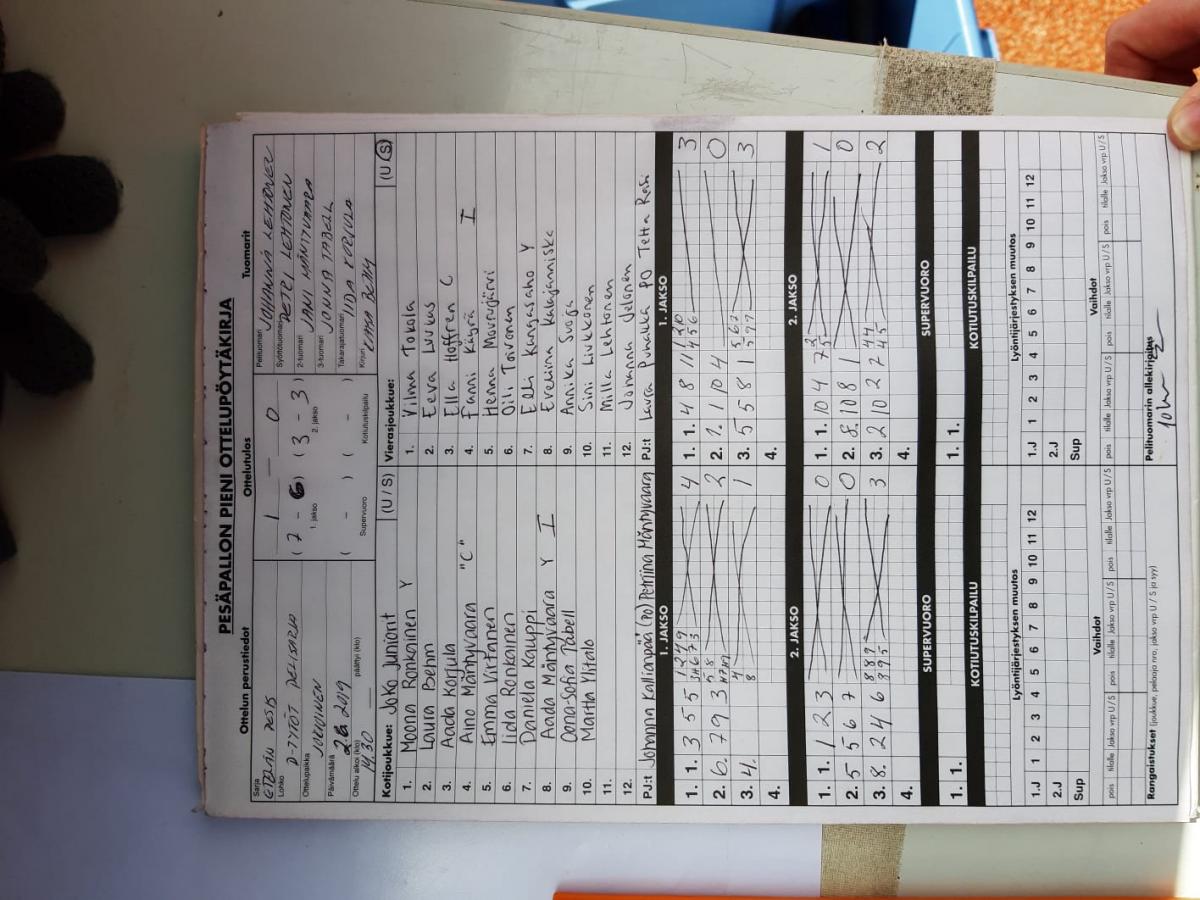 PESÄPALLON PIENI OTTELUPÖYTÄKIRJA
Ottelun perustiedot
Sarja
ETELÄN PESIS
Lohko
D-TYTÖT PELISARJA
Ottelupaikka
JOKIOINEN
Päivämäärä
2.6 2019
Ottelu alkoi (klo) päättyi (klo)
14.30
Ottelutulos
1 - 0
(7 - 6) (3 - 3)
1. jakso 2. jakso
( - ) ( - )
Supervuoro Kotiutuskilpailu
Tuomarit
Pelituomari JOHANNA LEHTONEN
Syöttötuomari PETRI LEHTONEN
2-tuomari JANI MÄNTYVAARA
3-tuomari JONNA TABELL
Takarajatuomari IIDA KORJULA
Kirjuri
Kotijoukkue: JoKo Juniorit (U / S)
1. Moona Ronkainen Y
2. Laura Behm
3. Aada Korjula
4. Aino Mäntyvaara "C"
5. Emma Virtanen
6. Iida Ronkainen
7. Daniela Kauppi
8. Aada Mäntyvaara Y I
9. Oona-Sofia Tabell
10. Martta Ylitalo
11.
12.
PJ:t Johanna Kallionpää (PO) Petriina Mäntyvaara
Vierasjoukkue: (U S)
1. Vilma Tokola
2. Eeva Luukus
3. Ella Hoffren C
4. Fanni Käyrä I
5. Henna Mourujärvi
6. Oili Toivonen
7. Elli Kangasaho Y
8. Eveliina Kalajanniska
9. Annika Suoja
10. Sini Liukkonen
11. Milla Lehtonen
12. Johanna Jelonen
PJ:t Laura Puhakka PO Tetta Rasi
1. JAKSO 1. JAKSO
1. 1. 3 5 5 4 1. 1. 4 8 11 3
2. 6. 7 9 3 2 2. 1. 1 10 4 0
3. 4. 1 3. 5 5 8 1 3
4. 4.
2. JAKSO 2. JAKSO
1. 1. 1 2 3 0 1. 1. 10 4 7 1
2. 5 5 6 7 0 2. 8. 10 8 1 0
3. 8. 2 4 6 3 3. 2 10 2 7 2
4. 4.
SUPERVUORO SUPERVUORO
1. 1. 1. 1.
KOTIUTUSKILPAILU KOTIUTUSKILPAILU
Lyöntijärjestyksen muutos Lyöntijärjestyksen muutos
1.J 1 2 3 4 5 6 7 8 9 10 11 12 1.J 1 2 3 4 5 6 7 8 9 10 11 12
2.J 2.J
Sup Sup
Vaihdot Vaihdot
pois tilalle Jakso vrp U / S pois tilalle Jakso vrp U / S pois tilalle Jakso vrp U / S pois tilalle Jakso vrp U / S pois tilalle Jakso vrp U / S pois tilalle Jakso vrp U / S
Rangaistukset (joukkue, pelaaja nro, jakso vrp U / S ja syy) Pelituomarin allekirjoitus